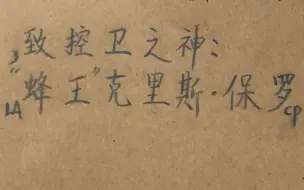 致控卫之神：
"蜂王"克里斯·保罗
3
LA
CP